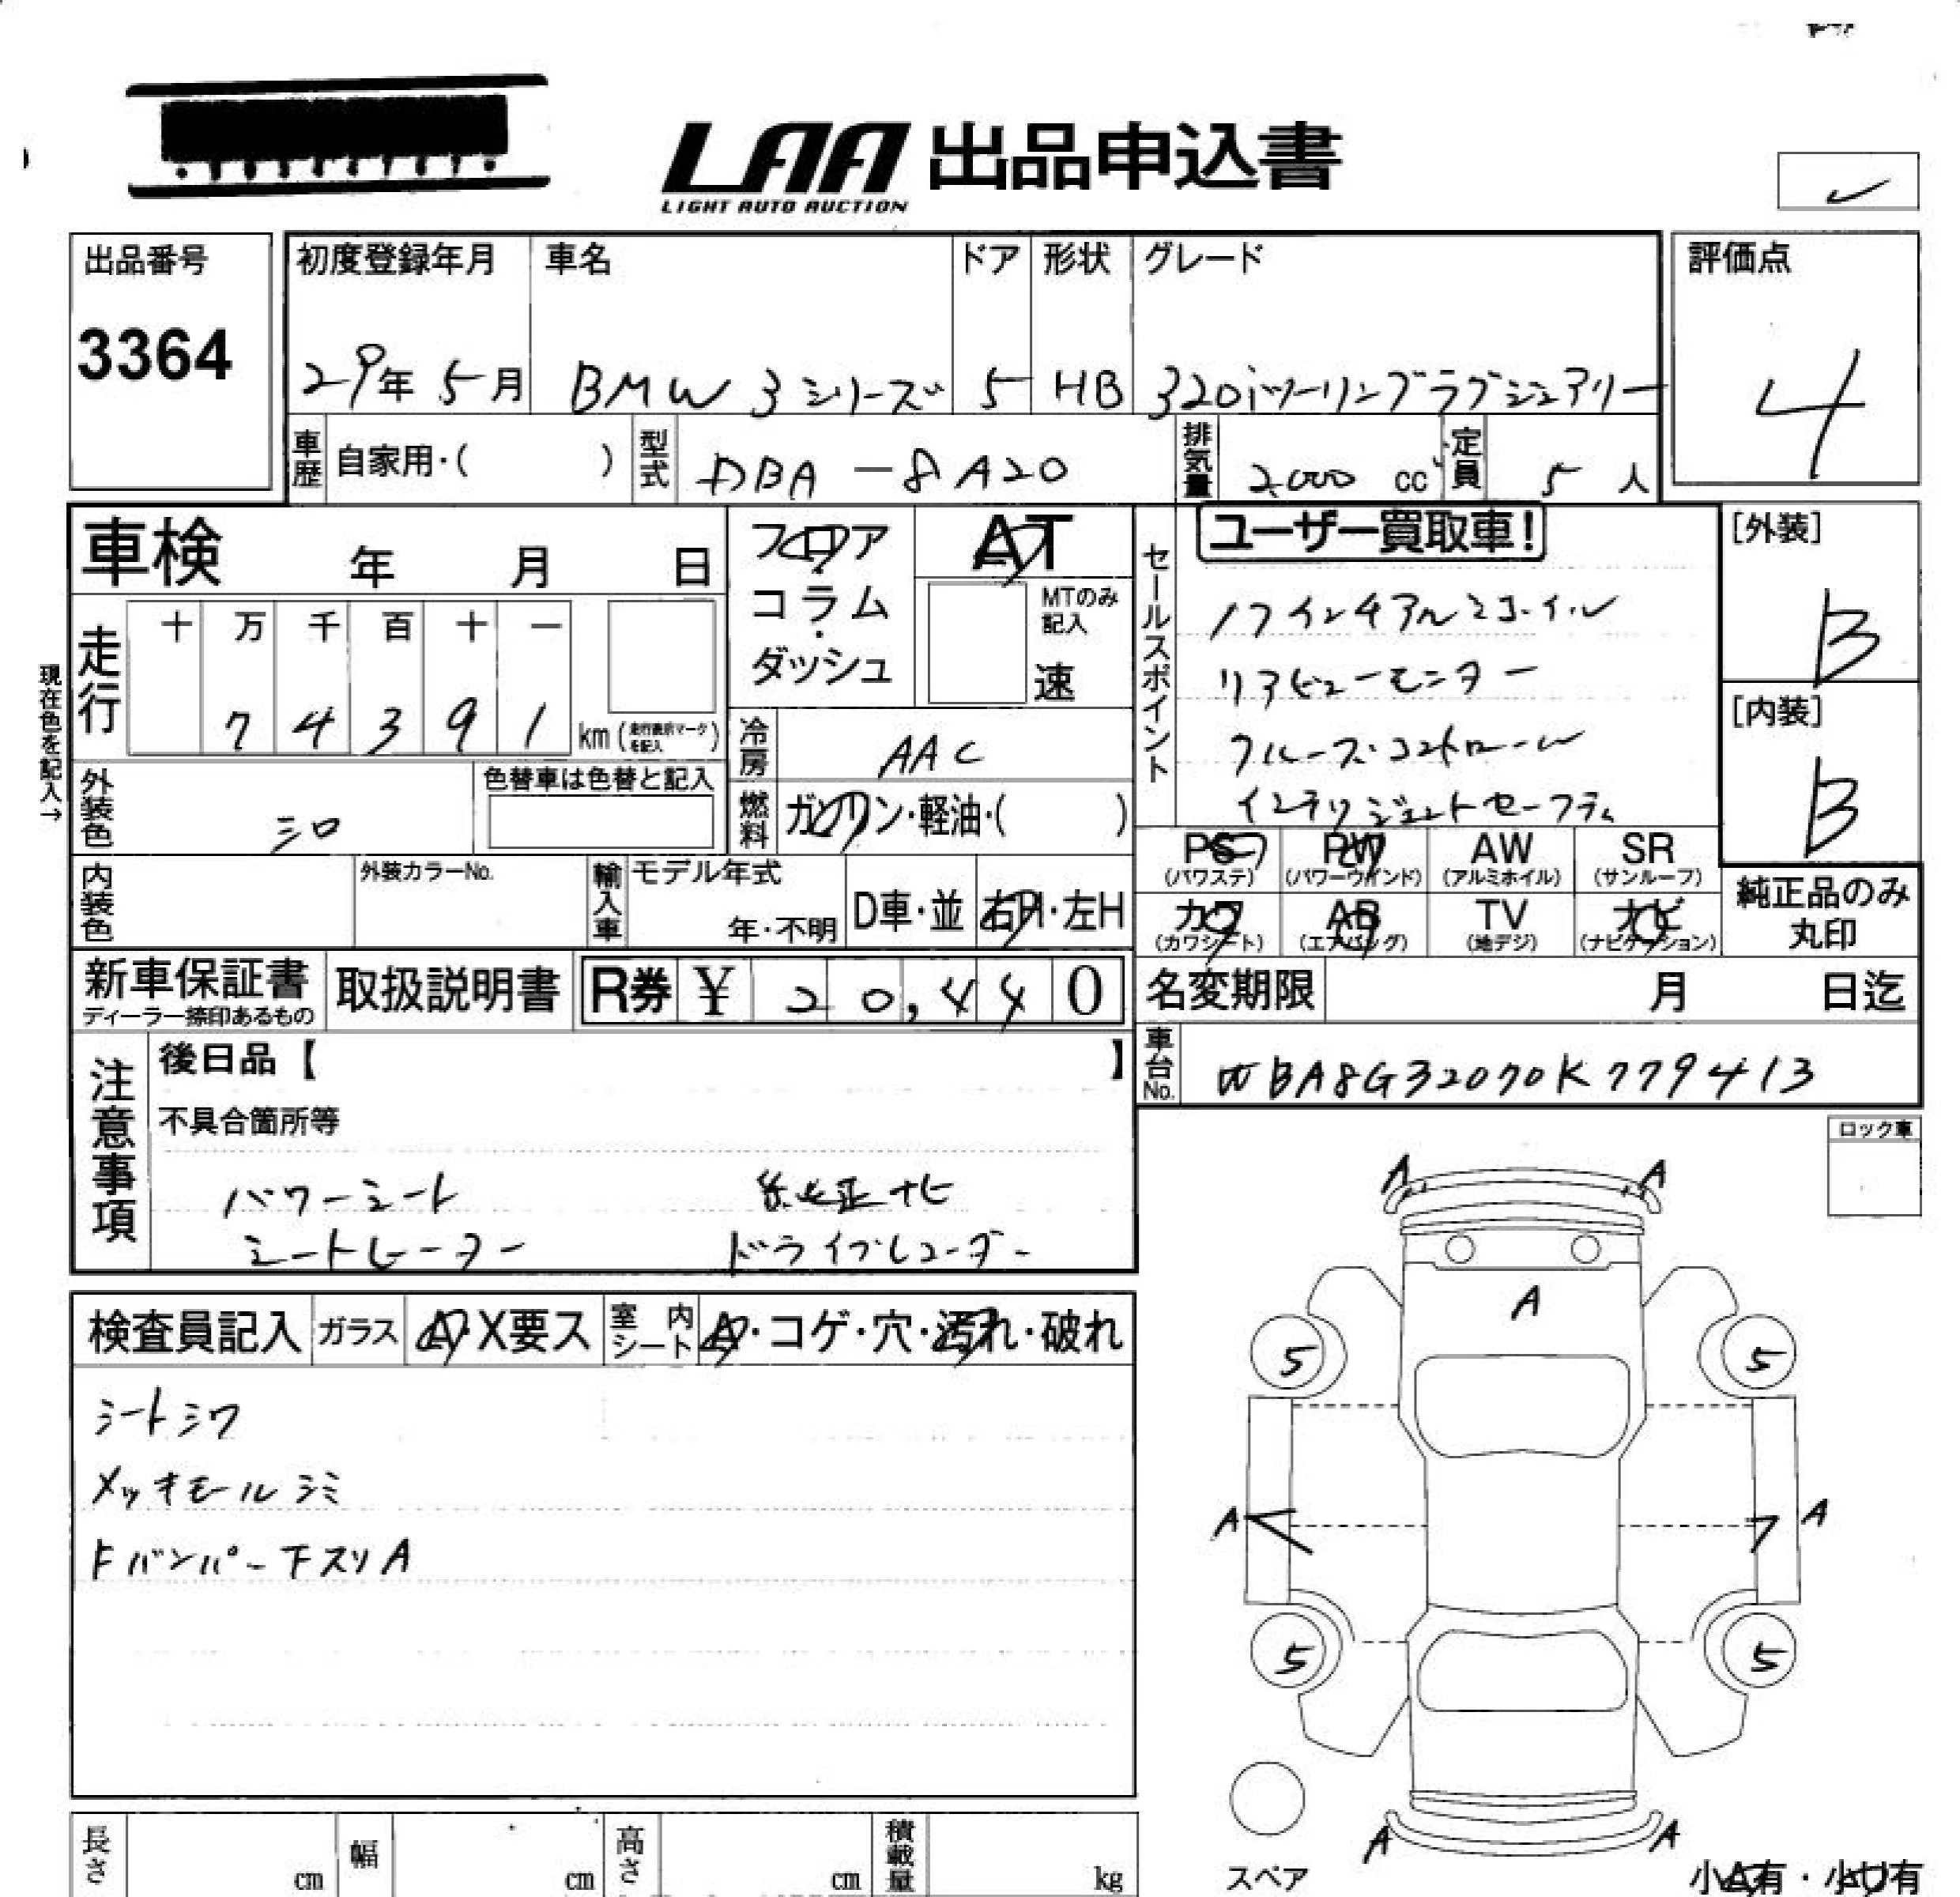 LAA 出品申込書
LIGHT AUTO AUCTION
出品番号
3364
初度登録年月 車名 ドア 形状 グレード
29年 5月 BMW 3シリーズ 5 HB 320iツーリングラグジュアリー
評価点
4
車歴 自家用・( ) 型式 DBA-8A20 排気量 2,000 cc 定員 5 人
車検 年 月 日
フロア・コラム・ダッシュ
AT
MTのみ記入
速
現在色を記入→
走行 十 万 千 百 十 一
7 4 3 9 1 km (走行表示マークを記入)
冷房 AAC
外装色 シロ
色替車は色替と記入
燃料 ガソリン・軽油・( )
内装色
外装カラーNo.
輸入車 モデル年式
年・不明 D車・並 右H・左H
セールスポイント
ユーザー買取車!
17インチアルミホイル
リアビューモニター
クルーズ・コントロール
インテリジェントセーフティ
[外装]
B
[内装]
B
PS PW AW SR
(パワステ) (パワーウインド) (アルミホイル) (サンルーフ)
カワ AB TV ナビ
(カワシート) (エアバッグ) (地デジ) (ナビゲーション)
純正品のみ
丸印
新車保証書
ディーラー捺印あるもの
取扱説明書
R券 ¥ 20,440
名変期限 月 日迄
車台No. WBA8G32070K779413
注意事項
後日品【 】
不具合箇所等
パワーシート 純正ナビ
シートヒーター ドライブレコーダー
ロック車
検査員記入 ガラス A・X要ス 室内シート A・コゲ・穴・汚れ・破れ
シートシワ
メッキモールシミ
Fバンパー下スリA
A A
A
5 5
A A
5 5
A A
スペア
小A有・小U有
長さ cm 幅 cm 高さ cm 積載量 kg